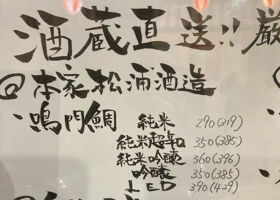 酒蔵直送!! 厳
@本家松浦酒造
・鳴門鯛
純米 290(319)
純米超辛口 350(385)
純米吟醸 360(396)
吟醸 350(385)
LED 390(429)